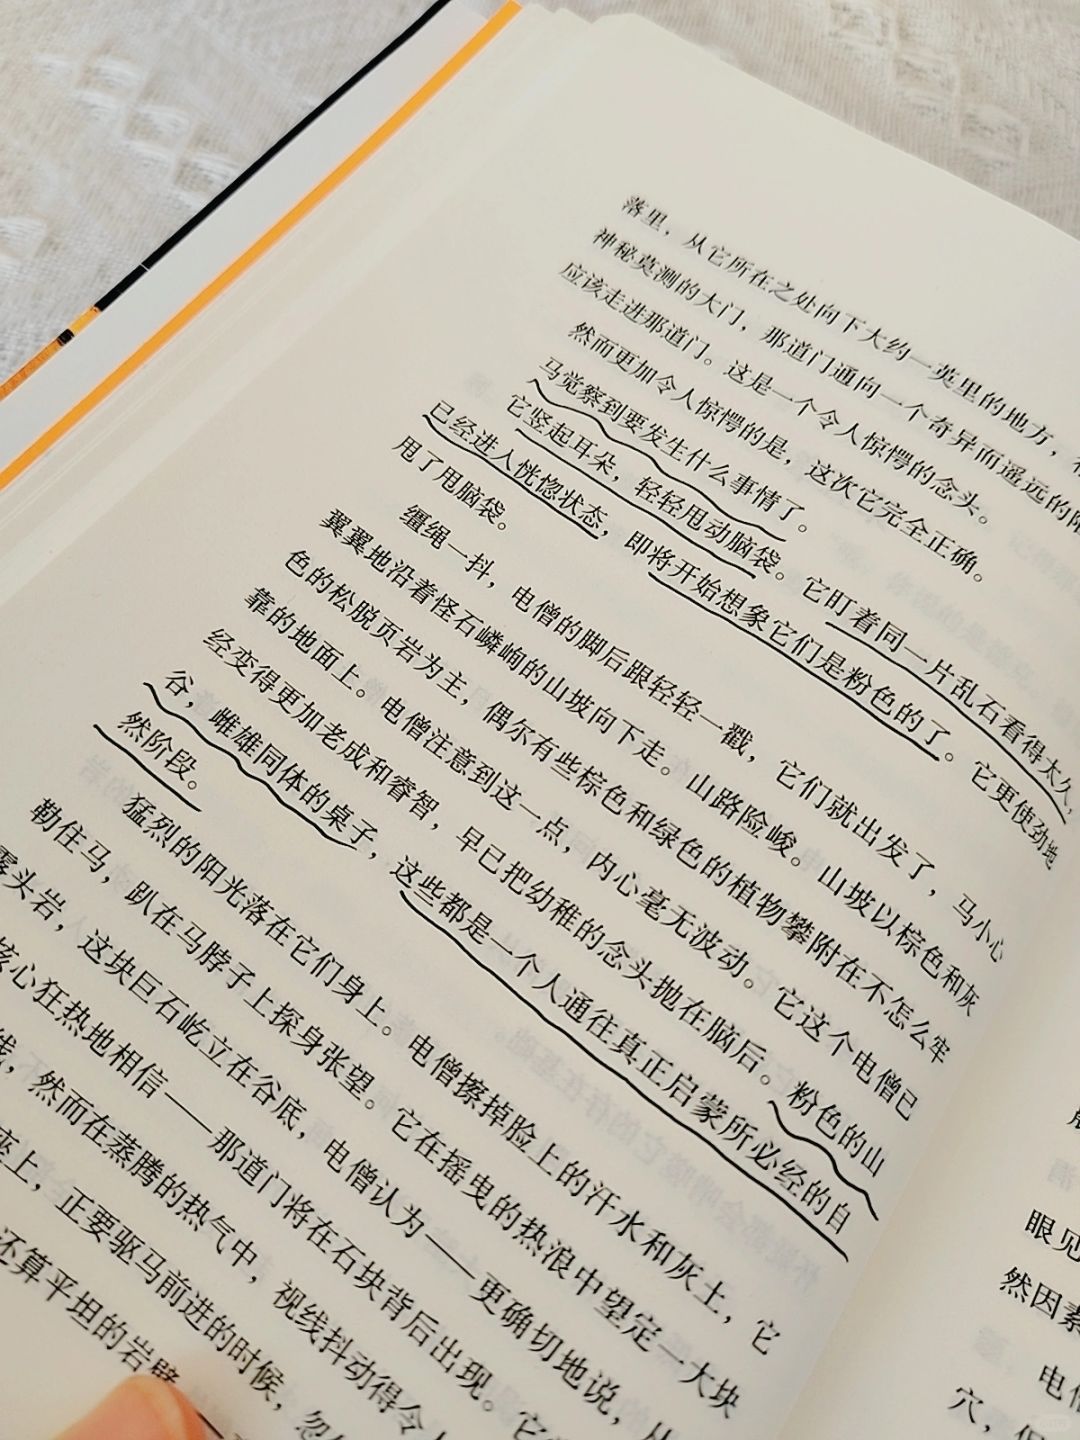 落里，从它所在之处向下大约一英里的地方，
神秘莫测的大门，那道门通向一个奇异而遥远的
应该走进那道门。这是一个令人惊愕的念头。
然而更加令人惊愕的是，这次它完全正确。
马觉察到要发生什么事情了。
它竖起耳朵，轻轻甩动脑袋。它盯着同一片乱石看得太久，
已经进入恍惚状态，即将开始想象它们是粉色的了。它更使劲地
甩了甩脑袋。
缰绳一抖，电僧的脚后跟轻轻一戳，它们就出发了，马小心
翼翼地沿着怪石嶙峋的山坡向下走。山路险峻。山坡以棕色和灰
色的松脱页岩为主，偶尔有些棕色和绿色的植物攀附在不怎么牢
靠的地面上。电僧注意到这一点，内心毫无波动。它这个电僧已
经变得更加老成和睿智，早已把幼稚的念头抛在脑后。粉色的山
谷，雌雄同体的桌子，这些都是一个人通往真正启蒙所必经的自
然阶段。
猛烈的阳光落在它们身上。电僧擦掉脸上的汗水和灰土，它
勒住马，趴在马脖子上探身张望。它在摇曳的热浪中望定一大块
露头岩，这块巨石屹立在谷底，电僧认为——更确切地说，从
核心狂热地相信——那道门将在石块背后出现。它
线，然而在蒸腾的热气中，视线抖动得令人
座上，正要驱马前进的时候，忽
还算平坦的岩壁
眼见
然因素
电僧
穴，但